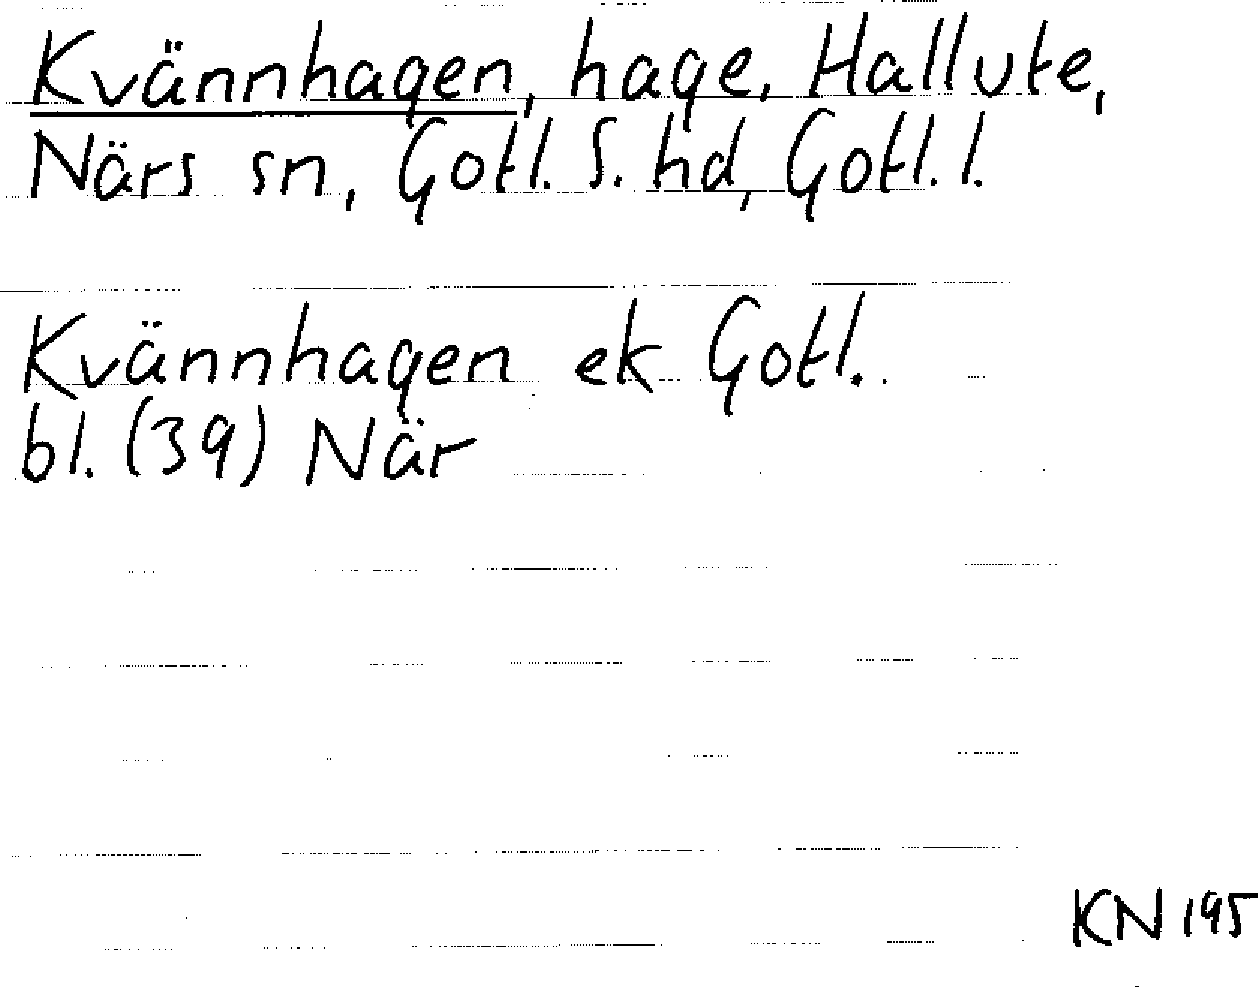 Kvännhagen, hage, Hallute,
Närs sn, Gotl. S. hd, Gotl. l.
Kvännhagen ek Gotl.
bl. (39) När
KN 195